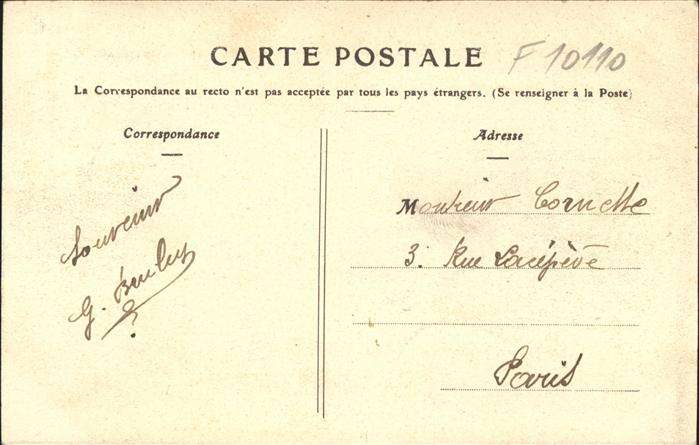 CARTE POSTALE
F 10110
La Correspondance au recto n'est pas acceptée par tous les pays étrangers. (Se renseigner à la Poste)
Correspondance
Souvenir
G.
Adresse
Monsieur Cornette
3. Rue Lacépède
Paris